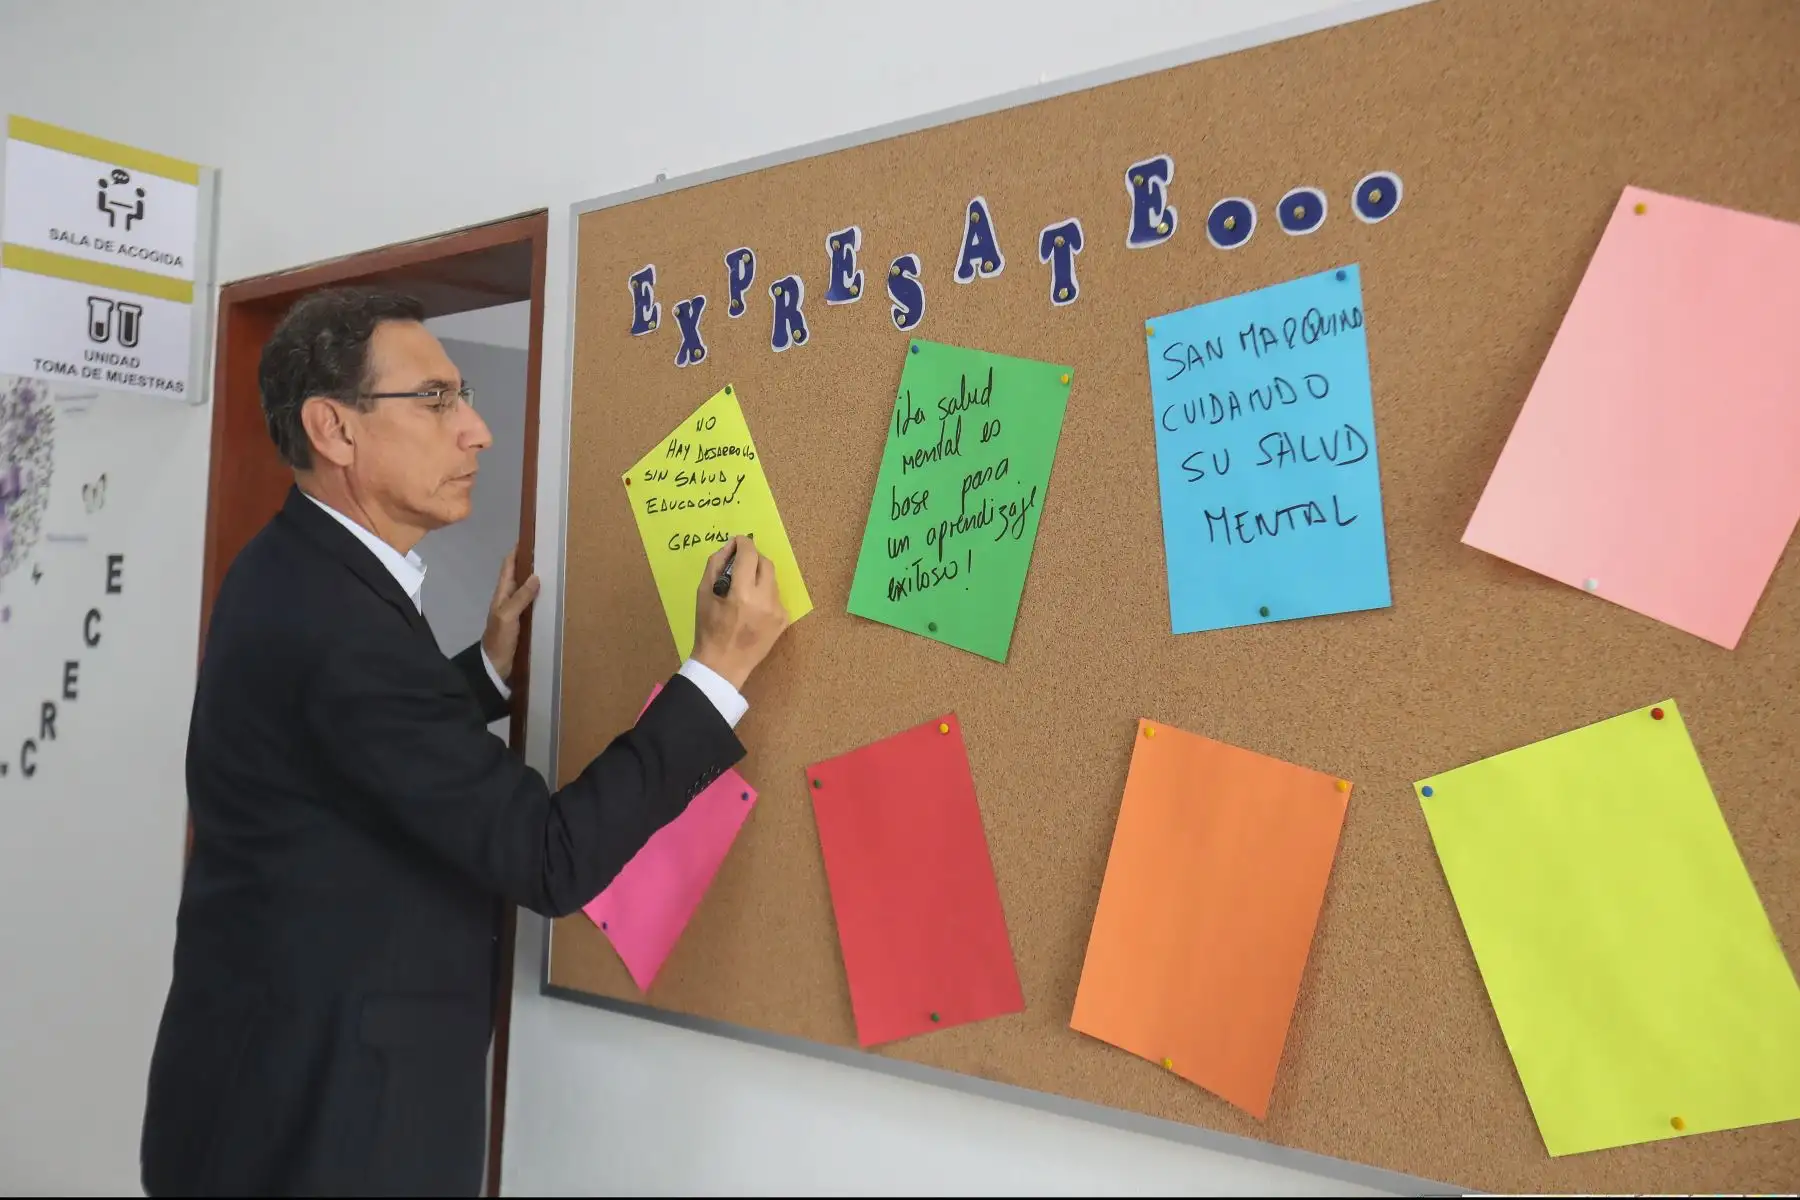 SALA DE ACOGIDA
UNIDAD
TOMA DE MUESTRAS
CRECE
EXPRESATE...
NO
HAY DESARROLLO
SIN SALUD Y
EDUCACION.
GRACIAS
¡La salud
mental es
base para
un aprendizaje
exitoso!
SAN MARQUINO
CUIDANDO
SU SALUD
MENTAL